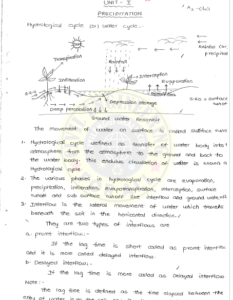 UNIT - I
PRECIPITATION
Hydrological cycle (or) water cycle:-
Transpiration
Rainfall
Interception
Evaporation
Infiltration
Depression storage
Deep percolation
Ground water Reservoir
The movement of water on surface
1. Hydrological cycle defined as transfer of water body into
atmosphere from the atmosphere to the ground and back to
the water body. This endless circulation of water is known as
Hydrological cycle.
2. The various phases in hydrological cycle are evaporation,
precipitation, infiltration, evapotranspiration, interception, surface
runoff and sub surface runoff like interflow and ground water
3. Interflow is the lateral movement of water which travels
beneath the soil in the horizontal direction.
They are two types of interflows are
a. prompt interflow:-
If the lag time is short called as prompt interflow
and it is more called delayed interflow
b- Delayed interflow:-
If the lag time is more called as Delayed interflow
Note:-
The lag time is defined as the time elapsed between the